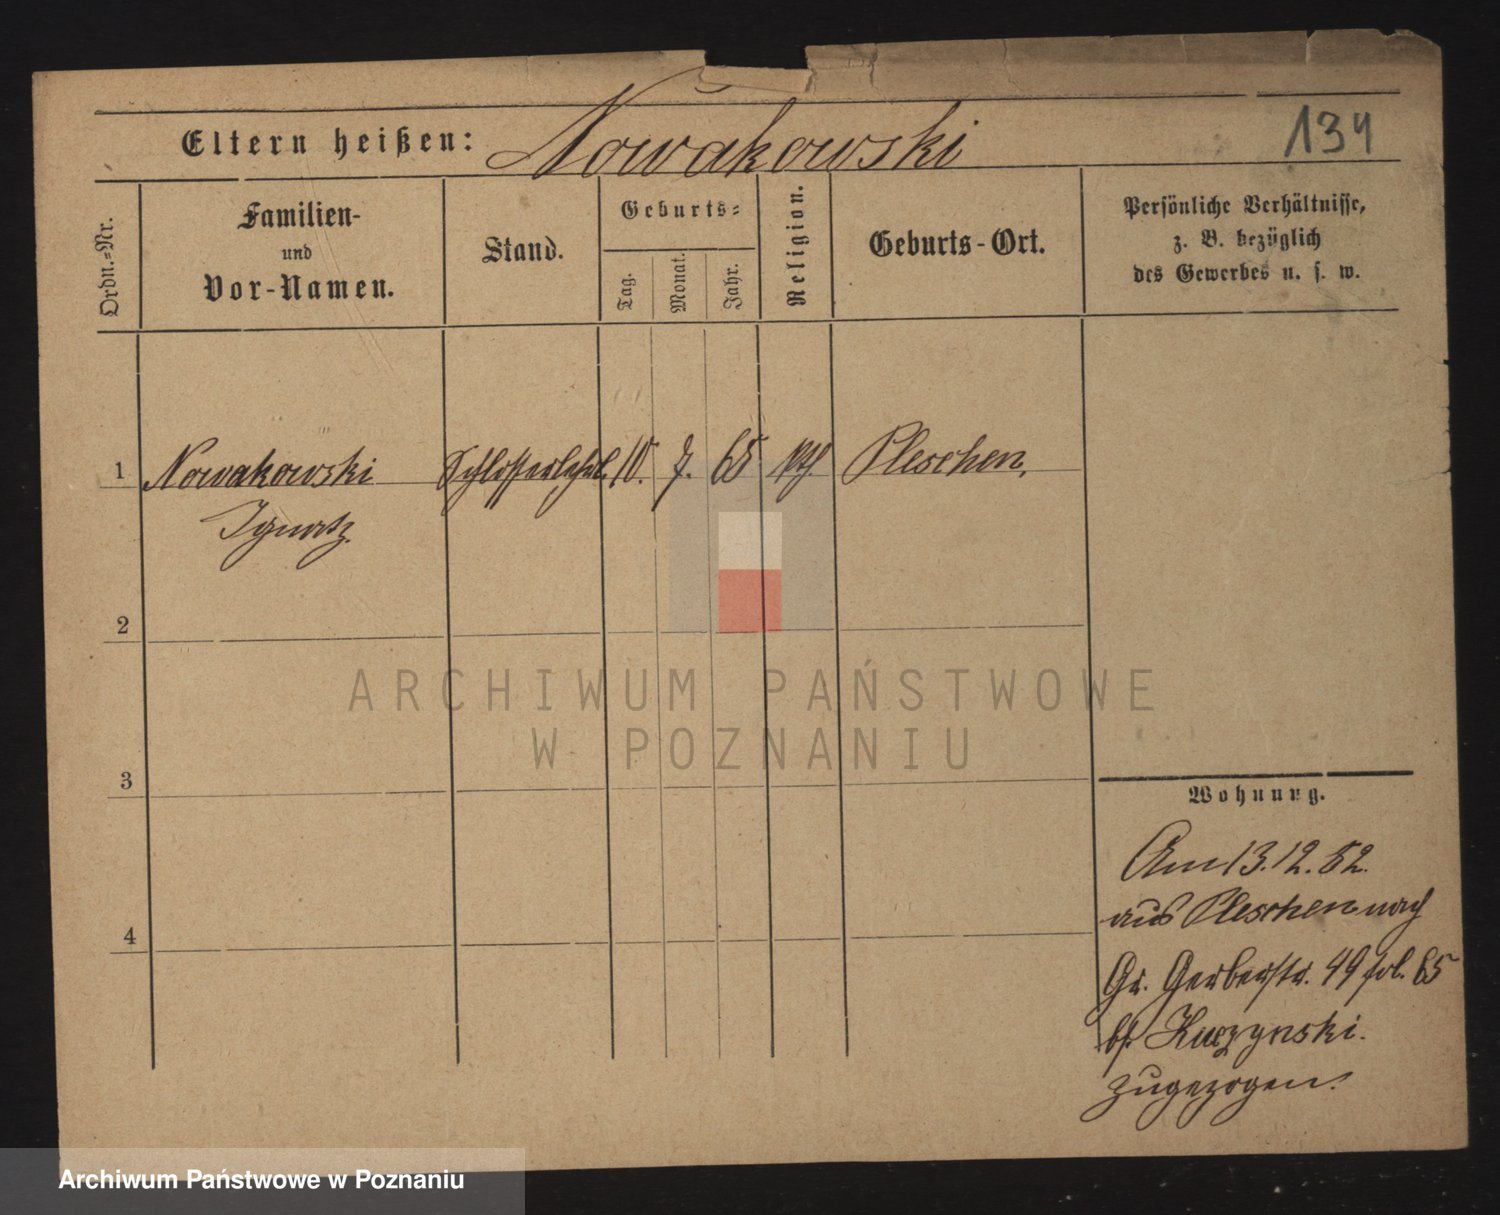 Eltern heißen: Nowakowski
134
Ordn.=Nr.
Familien-
und
Vor-Namen.
Stand.
Geburts=
Tag.
Monat.
Jahr.
Religion.
Geburts-Ort.
Persönliche Verhältnisse,
z. B. bezüglich
des Gewerbes u. s. w.
1 Nowakowski Schlosserlehrl. 10. 7. 65 kth Pleschen,
Ignatz.
2
ARCHIWUM PAŃSTWOWE
W POZNANIU
3
Wohnung.
Am 13.12.82.
aus Pleschen nach
4
Gr. Gerberstr. 49 fol. 65
bei Kuczynski.
zugezogen.
Archiwum Państwowe w Poznaniu